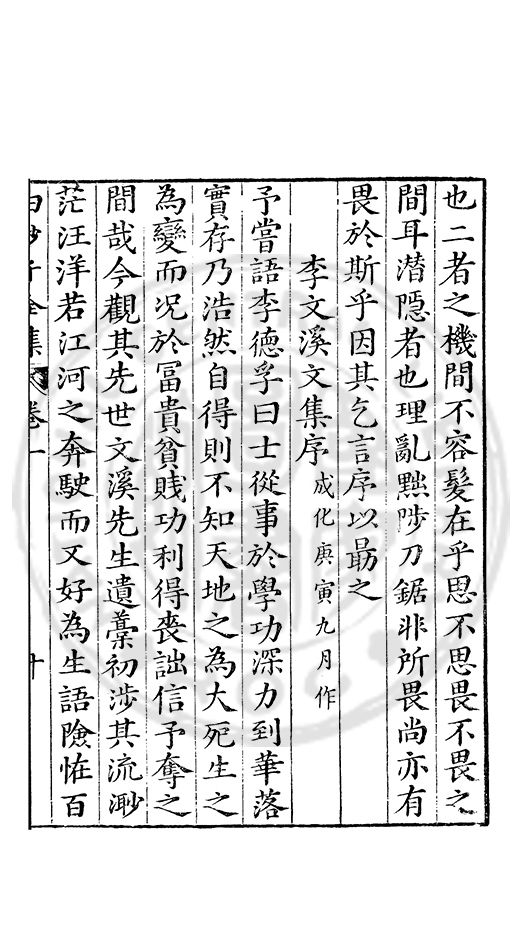 也二者之機間不容髮在乎思不思畏不畏之
間耳潛隱者也理亂黜陟刀鋸非所畏尚亦有
畏於斯乎因其乞言序以勗之
李文溪文集序成化庚寅九月作
予嘗語李德孚曰士從事於學功深力到華落
實存乃浩然自得則不知天地之為大死生之
為變而况於冨貴貧賤功利得喪詘信予奪之
間哉今觀其先世文溪先生遺藁初涉其流渺
茫汪洋若江河之奔駛而又好為生語險怪百
白沙子全集 卷一 十